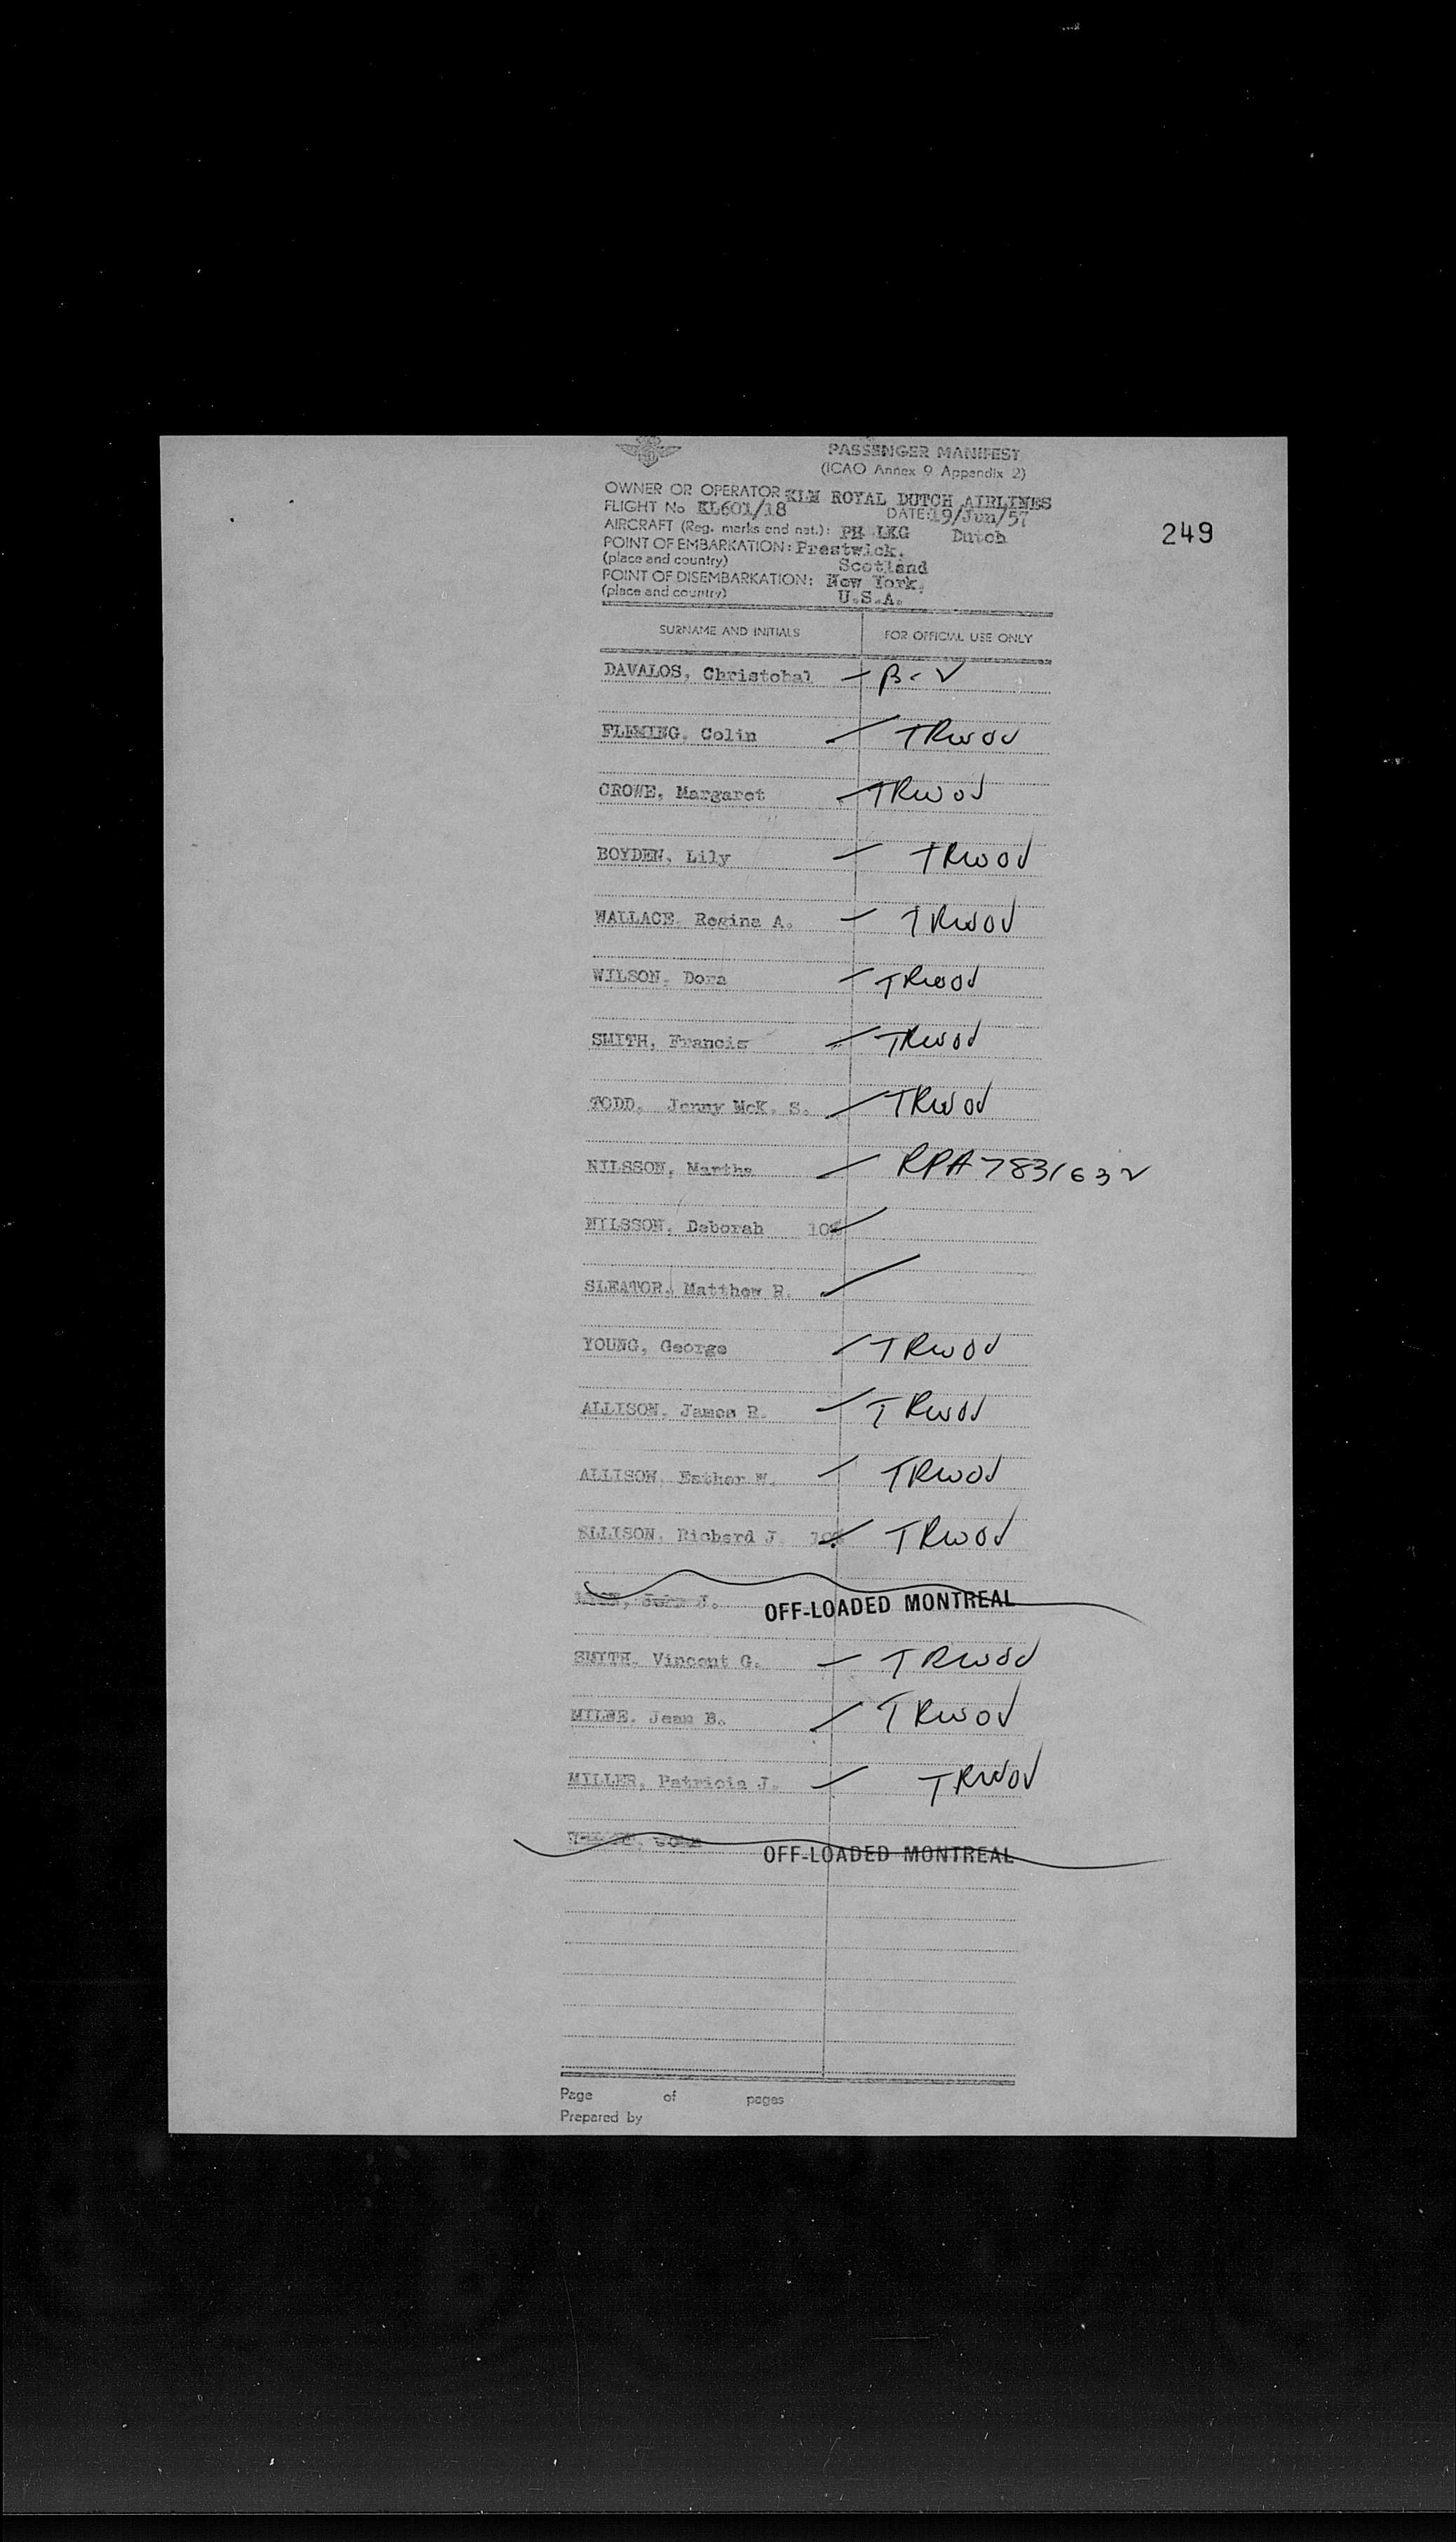 PASSENGER MANIFEST
(ICAO Annex 9 Appendix 2)
249
OWNER OR OPERATOR KLM ROYAL DUTCH AIRLINES
FLIGHT No KL601/18 DATE: 19/Jun/57
AIRCRAFT (Reg. marks and nat.): PH LKG Dutch
POINT OF EMBARKATION: Prestwick.
(place and country) Scotland
POINT OF DISEMBARKATION: New York.
(place and country) U.S.A.
SURNAME AND INITIALS FOR OFFICIAL USE ONLY
DAVALOS, Christobal B-2
FLEMING, Colin TRWOV
CROWE, Margaret TRWOV
BOYDEN, Lily TRWOV
WALLACE, Regina A. TRWOV
WILSON, Dora TRWOV
SMITH, Francis TRWOV
TODD, Jenny McK. S. TRWOV
NILSSON, Martha RPA7831632
NILSSON, Deborah 10%
SLEATOR, Matthew R.
YOUNG, George TRWOV
ALLISON, James R. TRWOV
ALLISON, Esther W. TRWOV
ELLISON, Richard J. 10% TRWOV
John J. OFF-LOADED MONTREAL
SMITH, Vincent G. TRWOV
MILNE, Jean B. TRWOV
MILLER, Patricia J. TRWOV
OFF-LOADED MONTREAL
Page of pages
Prepared by